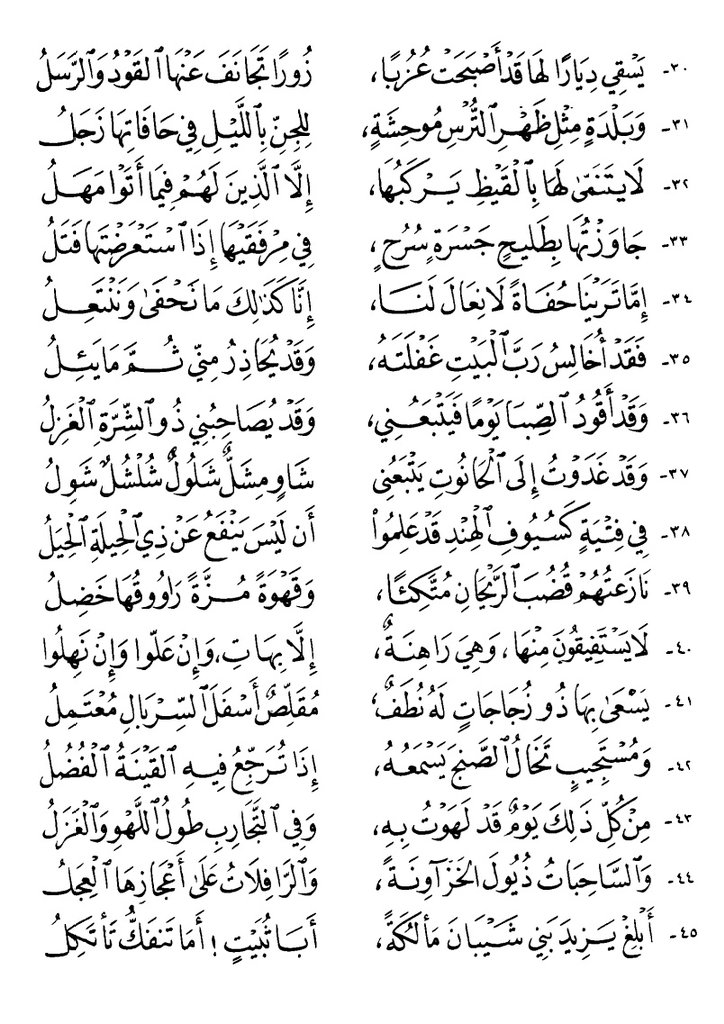 ٣٠- يَسْقِي دِيَارًا لَهَا قَدْ أَصْبَحَتْ عُزُبًا، زُورًا تَجَانَفَ عَنْهَا القَوْدُ وَالرَّسَلُ
٣١- وَبَلْدَةٍ مِثْلِ ظَهْرِ التُّرْسِ مُوحِشَةٍ، لِلجِنِّ بِاللَّيْلِ فِي حَافَاتِهَا زَجَلُ
٣٢- لَا يَتَنَمَّى لَهَا بِالْقَيْظِ يَرْكَبُهَا، إِلَّا الَّذِينَ لَهُمْ فِيمَا أَتَوْا مَهَلُ
٣٣- جَاوَزْتُهَا بِطَلِيحٍ جَسْرَةٍ سُرُحٍ، فِي مِرْفَقَيْهَا إِذَا اسْتَعْرَضْتَهَا فَتَلُ
٣٤- إِمَّا تَرَيْنَا حُفَاةً لَا نِعَالَ لَنَا، إِنَّا كَذَلِكَ مَا نَحْفَى وَنَنْتَعِلُ
٣٥- فَقَدْ أُخَالِسُ رَبَّ الْبَيْتِ غَفْلَتَهُ، وَقَدْ يُحَاذِرُ مِنِّي ثُمَّ مَا يَئِلُ
٣٦- وَقَدْ أَقُودُ الصِّبَا يَوْمًا فَيَتْبَعُنِي، وَقَدْ يُصَاحِبُنِي ذُو الشِّرَّةِ الْغَزِلُ
٣٧- وَقَدْ غَدَوْتُ إِلَى الْحَانُوتِ يَتْبَعُنِي شَاوٍ مِشَلٌّ شَلُولٌ شُلْشُلٌ شَوِلُ
٣٨- فِي فِتْيَةٍ كَسُيُوفِ الْهِنْدِ قَدْ عَلِمُوا أَن لَيْسَ يَنْفَعُ عَنْ ذِي الْحِيلَةِ الْحِيَلُ
٣٩- نَازَعْتُهُمْ قُضُبَ الرَّيْحَانِ مُتَّكِئًا، وَقَهْوَةً مُزَّةً رَاوُوقُهَا خَضِلُ
٤٠- لَا يَسْتَفِيقُونَ مِنْهَا، وَهِيَ رَاهِنَةٌ، إِلَّا بِهَاتِ، وَإِنْ عَلّوا وَإِنْ نَهِلُوا
٤١- يَسْعَى بِهَا ذُو زُجَاجَاتٍ لَهُ نُطَفٌ، مُقَلِّصٌ أَسْفَلَ السِّرْبَالِ مُعْتَمِلُ
٤٢- وَمُسْتَجِيبٍ تَخَالُ الصَّنْجَ يَسْمَعُهُ، إِذَا تُرَجِّعُ فِيهِ القَيْنَةُ الْفُضُلُ
٤٣- مِنْ كُلِّ ذَلِكَ يَوْمٌ قَدْ لَهَوْتُ بِهِ، وَفِي التَّجَارِبِ طُولُ اللَّهْوِ وَالْغَزَلُ
٤٤- وَالسَّاحِبَاتُ ذُيُولَ الخَزِّ آوِنَةً، وَالرَّافِلَاتُ عَلَى أَعْجَازِهَا الْعِجَلُ
٤٥- أَبْلِغْ يَزِيدَ بَنِي شَيْبَانَ مَأْلُكَةً، أَبَا ثُبَيْتٍ! أَمَا تَنفَكُّ تَأْتَكِلُ